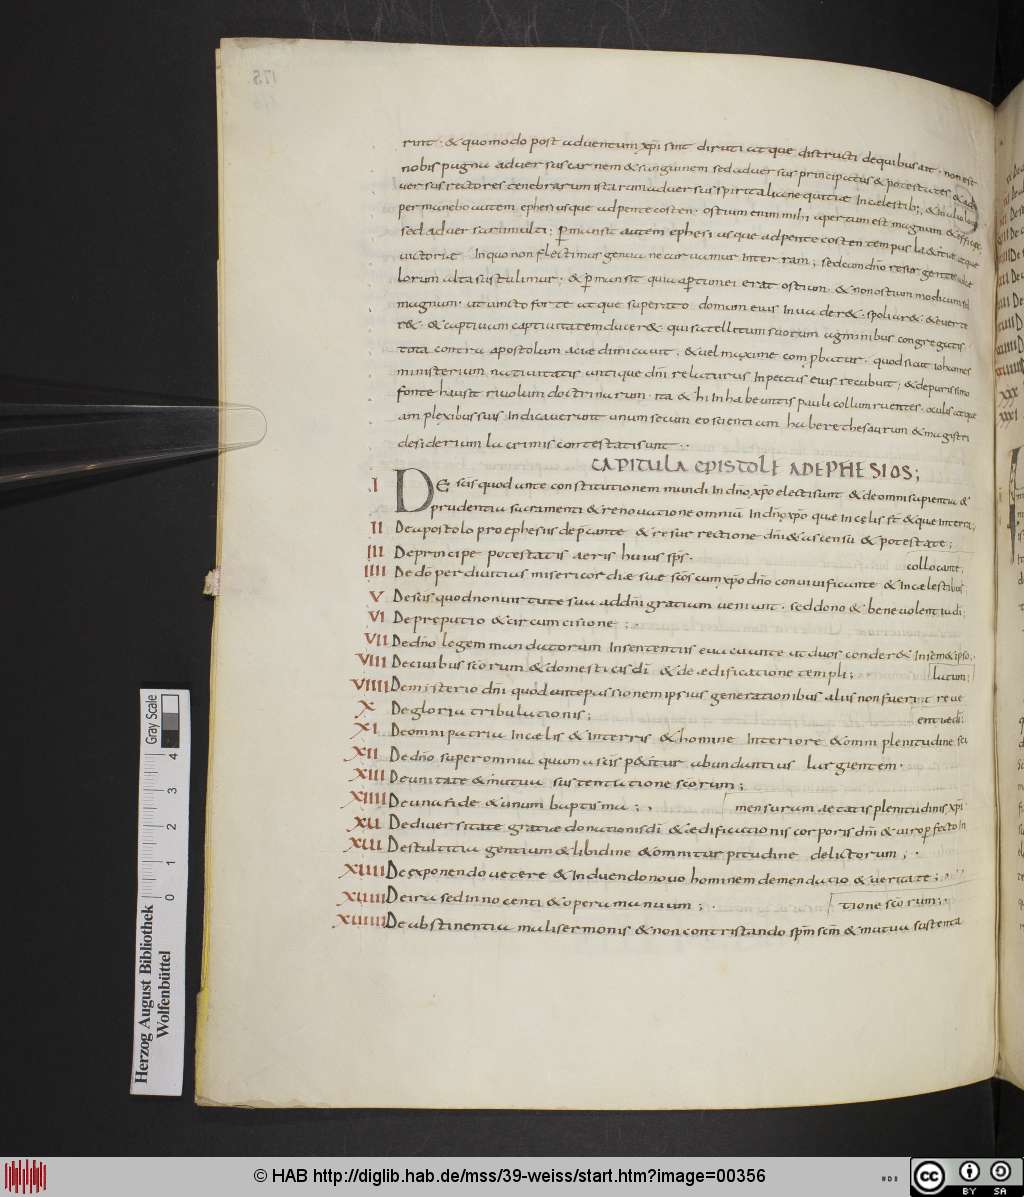 runt · & quomodo post aduentum xpi sint diruti atque distructi dequibus ait · non est
nobis pugna aduersus carnem & sanguinem sed aduersus principatus & potestates & ad
uersus rectores tenebrarum istarum aduersus spiritaliae nequitiae incaelestib;
permanebo autem ephesi usque adpentecosten · ostium enim mihi apertum est magnum &
sed aduersarii multi; permansit autem ephesi usque adpentecosten tempus
uictoriae Inquo non flectimus genua ne curuamur Interram; sed cum dno resurgentes
lorum alta sustulimur; & permansit quia apertum ei erat ostium · & non ostium modicum sed
magnum · ut uincto forte atque superato domum eius Inuader& · spoliar& · & euerte
r& · & captiuam captiuitatem ducer& · qui satellitum suorum agminibus congregatis
tota contra apostolum acie dimicauit · & uel maxime comprobatur · quod sicut iohannes
ministerium natiuitatis antique dni relaturus Inpectus eius recubuit; & depurissimo
fonte hausit riuolum doctrinarum · ita & hi
amplexibus suis Indicauerunt unum secum eo scientiam habere thesaurum & magistri
desiderium lacrimis contestati sunt ··
CAPITULA EPISTOLE ADEPHESIOS;
I DE scis quod ante constitutionem mundi Indno xpo electi sunt & de omni sapientia &
prudentia sacramenti & renouatione omniu Indno xpo que Incelis st & que Interra;
II De apostolo pro ephesiis deprcante & resurrectione dni & ascensu & potestate;
III De principe potestatis aeris huius sps · collocante;
IIII De do per diuitius misericordiae suae scos cum xpo dno conuiuificante & Incaelestibus
V De scis quod non uirtute sua addni gratiam ueniunt · sed dono & beneuolentia di;
VI De preputio & circumcisione ; ·
VII De dno legem mandatorum Insententiis euacuante ut duos conder& Insem&ipso ·
VIII De ciuibus scorum & domesticis di & de aedificatione templi; lutum;
VIIII De misterio dni quod ante passionem ipsius generationibus aliis non fuerit reue
X De gloria tribulationis; ent uedi;
XI De omni patria Incaelis & interris & homine Interiore & omni plenitudine
XII De dno super omnia quam a scis p&itur abundantius largientem ·
XIII De unitate & mutua sustentatione scorum;
XIIII De una fide & unum baptisma ; · mensuram aetatis plenitudinis xpi
XV De diuersitate gratiae donationis di & aedificationis corporis dni & uiro perfecto In
XVI De stultitia gentium & libidine & omni turpitudine delictorum ; ·
XVII De exponendo uetere & Induendo nouo hominem de mendacio & ueritate ; ·
XVIII De ira sed innocenti & opera manuum ; · tione scorum; ·
XVIIII De abstinentia mali sermonis & non contristando spm scm & mutua sustenta
Herzog August Bibliothek
Wolfenbüttel
0 1 2 3 4
Gray Scale
© HAB http://diglib.hab.de/mss/39-weiss/start.htm?image=00356
cc BY SA